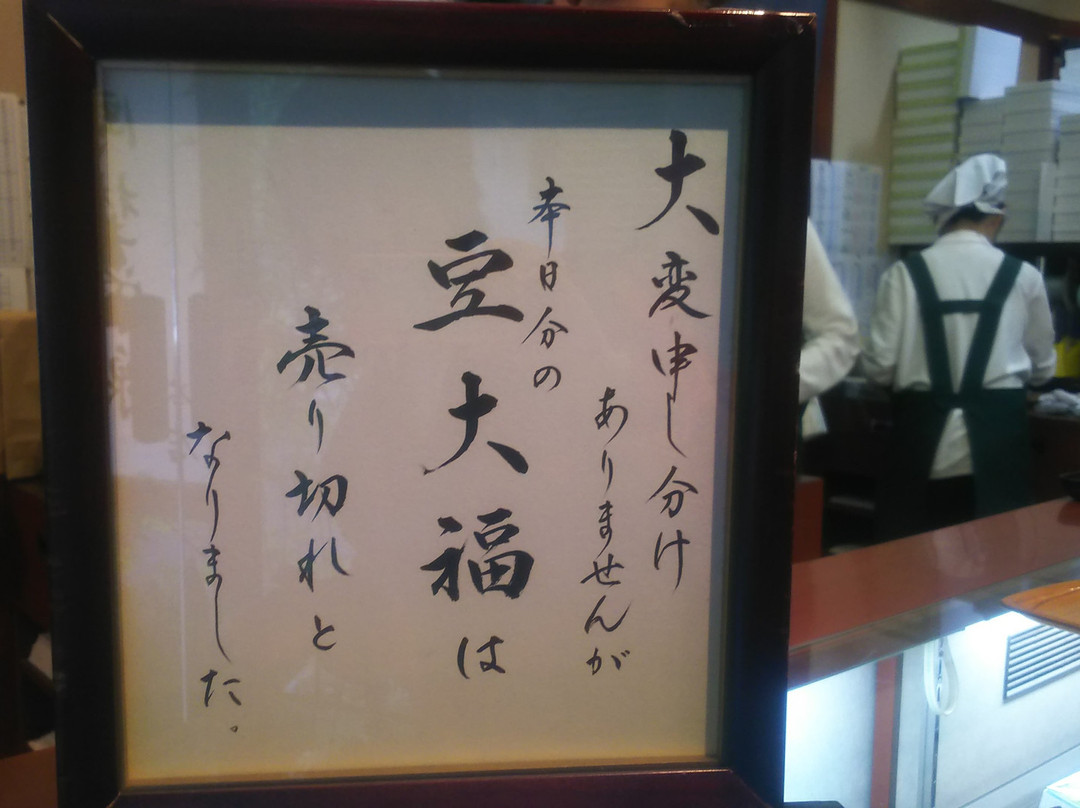 大変申し分け
ありませんが
本日分の
豆大福は
売り切れと
なりました。